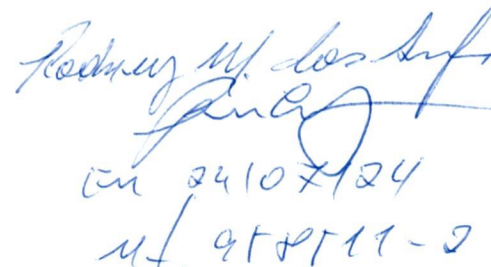 Rodney M. dos Anjos
Em 24/07/24
Mf 958511-2